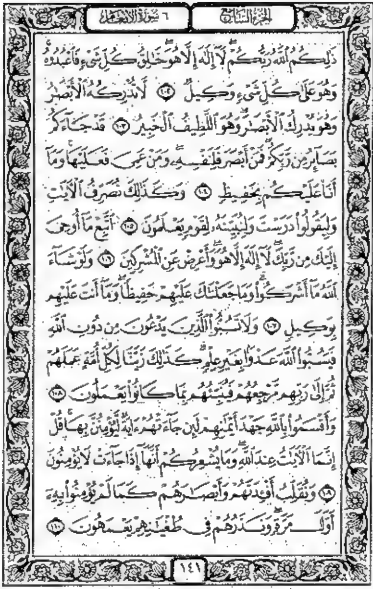 الجزء السابع
٦ سورة الأنعام
ذَٰلِكُمُ ٱللَّهُ رَبُّكُمْ لَآ إِلَٰهَ إِلَّا هُوَ خَٰلِقُ كُلِّ شَىْءٍ فَٱعْبُدُوهُ
وَهُوَ عَلَىٰ كُلِّ شَىْءٍ وَكِيلٌ ١٠٢ لَّا تُدْرِكُهُ ٱلْأَبْصَٰرُ
وَهُوَ يُدْرِكُ ٱلْأَبْصَٰرَ وَهُوَ ٱللَّطِيفُ ٱلْخَبِيرُ ١٠٣ قَدْ جَآءَكُم
بَصَآئِرُ مِن رَّبِّكُمْ فَمَنْ أَبْصَرَ فَلِنَفْسِهِۦ وَمَنْ عَمِىَ فَعَلَيْهَا وَمَآ
أَنَا۠ عَلَيْكُم بِحَفِيظٍ ١٠٤ وَكَذَٰلِكَ نُصَرِّفُ ٱلْءَايَٰتِ
وَلِيَقُولُوا۟ دَرَسْتَ وَلِنُبَيِّنَهُۥ لِقَوْمٍ يَعْلَمُونَ ١٠٥ ٱتَّبِعْ مَآ أُوحِىَ
إِلَيْكَ مِن رَّبِّكَ لَآ إِلَٰهَ إِلَّا هُوَ وَأَعْرِضْ عَنِ ٱلْمُشْرِكِينَ ١٠٦ وَلَوْ شَآءَ
ٱللَّهُ مَآ أَشْرَكُوا۟ وَمَا جَعَلْنَٰكَ عَلَيْهِمْ حَفِيظًا وَمَآ أَنتَ عَلَيْهِم
بِوَكِيلٍ ١٠٧ وَلَا تَسُبُّوا۟ ٱلَّذِينَ يَدْعُونَ مِن دُونِ ٱللَّهِ
فَيَسُبُّوا۟ ٱللَّهَ عَدْوًۢا بِغَيْرِ عِلْمٍ كَذَٰلِكَ زَيَّنَّا لِكُلِّ أُمَّةٍ عَمَلَهُمْ
ثُمَّ إِلَىٰ رَبِّهِم مَّرْجِعُهُمْ فَيُنَبِّئُهُم بِمَا كَانُوا۟ يَعْمَلُونَ ١٠٨
وَأَقْسَمُوا۟ بِٱللَّهِ جَهْدَ أَيْمَٰنِهِمْ لَئِن جَآءَتْهُمْ ءَايَةٌ لَّيُؤْمِنُنَّ بِهَا قُلْ
إِنَّمَا ٱلْءَايَٰتُ عِندَ ٱللَّهِ وَمَا يُشْعِرُكُمْ أَنَّهَآ إِذَا جَآءَتْ لَا يُؤْمِنُونَ
١٠٩ وَنُقَلِّبُ أَفْـِٔدَتَهُمْ وَأَبْصَٰرَهُمْ كَمَا لَمْ يُؤْمِنُوا۟ بِهِۦٓ
أَوَّلَ مَرَّةٍ وَنَذَرُهُمْ فِى طُغْيَٰنِهِمْ يَعْمَهُونَ ١١٠
١٤١